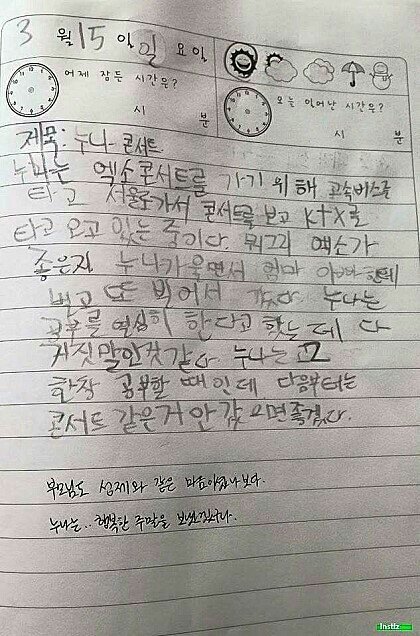 3 월 15 일 일 요일
어제 잠든 시간은?
시 분
오늘 일어난 시간은?
시 분
제목: 누나 콘서트
누나는 엑소콘서트를 가기 위해 고속버스를
타고 서울로가서 콘서트를 보고 KTX로
타고 오고 있는 중이다. 뭐그리 엑소가
좋은지 누나가울면서 엄마 아빠한테
빌고 또 빌어서 갔다. 누나는
공부를 열심히 한다고 햇는데 다
거짓말인것 같다. 누나는 고2
한창 공부할 때인데 다음부터는
콘서트 같은거 안 갔으면좋겠다.
부모님도 성제와 같은 마음이셨나보다.
누나는.. 행복한 주말을 보냈겠구나.
Instiz